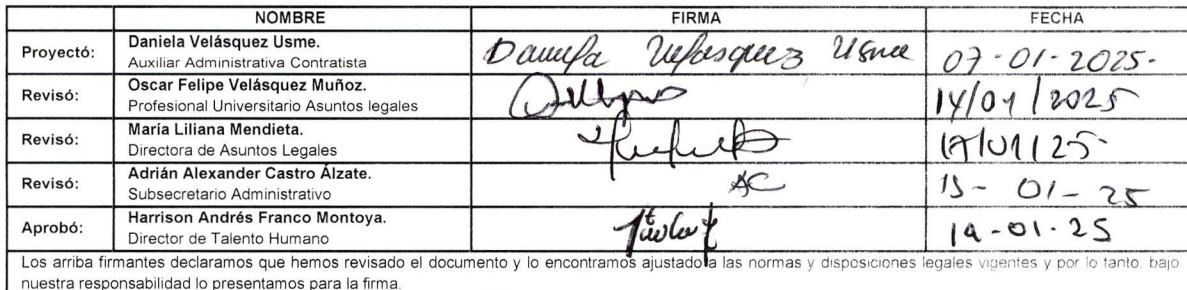 NOMBRE FIRMA FECHA
Proyectó: Daniela Velásquez Usme. Daniela Velasquez Usme 07-01-2025-
Auxiliar Administrativa Contratista
Revisó: Oscar Felipe Velásquez Muñoz. 14/01/2025
Profesional Universitario Asuntos legales
Revisó: María Liliana Mendieta. 17/01/25
Directora de Asuntos Legales
Revisó: Adrián Alexander Castro Álzate. AC 15-01-25
Subsecretario Administrativo
Aprobó: Harrison Andrés Franco Montoya.
Director de Talento Humano
Los arriba firmantes declaramos que hemos revisado el documento y lo encontramos ajustado a las normas y disposiciones legales vigentes y por lo tanto, bajo
nuestra responsabilidad lo presentamos para la firma.